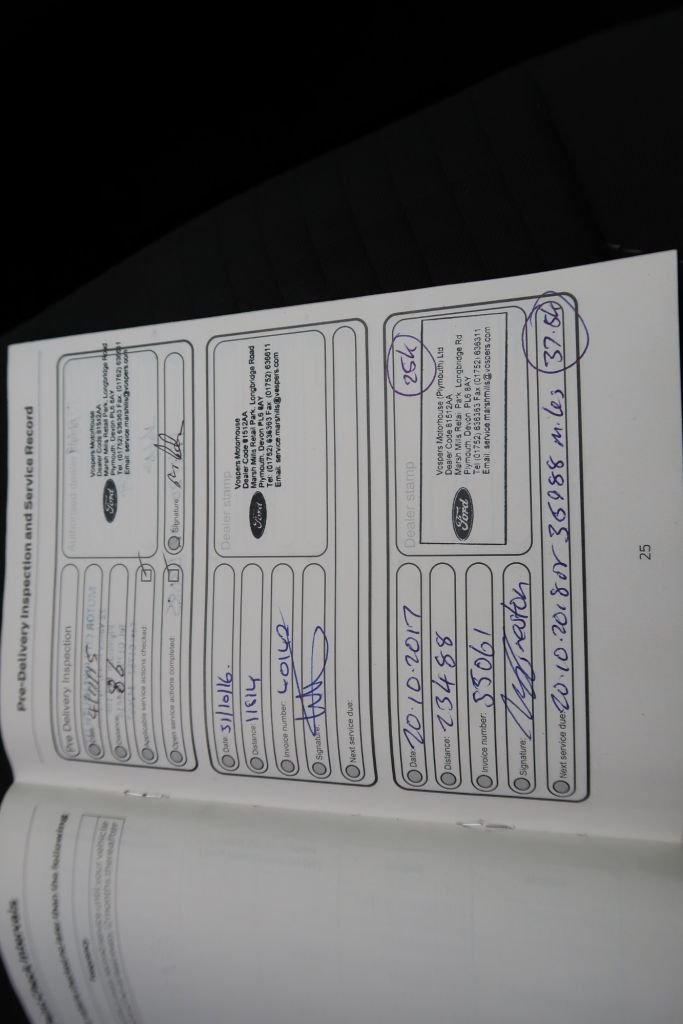 Pre-Delivery Inspection and Service Record
Pre Delivery Inspection
Distance: 86
Applicable service actions checked:
Open service actions completed:
Signature:
Vospers Motorhouse
Dealer Code 81512AA
Marsh Mills Retail Park, Longbridge Road
Plymouth, Devon PL6 8AY
Tel: (01752) 636363 Fax (01752)
Email: service.marshmills@vospers.com
Ford
Date: 31/10/16.
Distance: 11814
Invoice number: 40142
Signature:
Next service due:
Dealer stamp
Ford
Vospers Motorhouse
Dealer Code 81512AA
Marsh Mills Retail Park, Longbridge Road
Plymouth, Devon PL6 8AY
Tel: (01752) 636363 Fax: (01752) 636611
Email: service.marshmills@vospers.com
Date: 20.10.2017
Distance: 23488
Invoice number: 55061
Signature:
Next service due: 20.10.2018 or 36988 miles
37.5k
Dealer stamp
25k
Ford
Vospers Motorhouse (Plymouth) Ltd
Dealer Code 81512AA
Marsh Mills Retail Park Longbridge Rd
Plymouth Devon PL6 8AY
Tel (01752) 636363 Fax (01752) 636311
Email service.marshmills@vospers.com
25